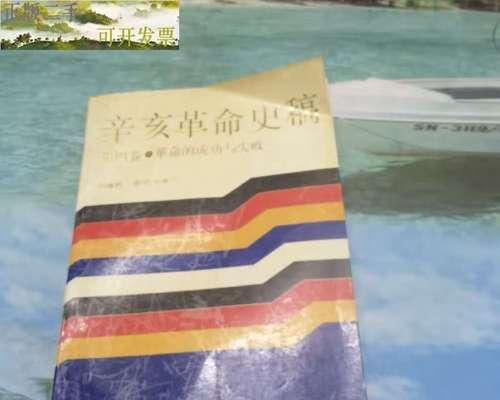 正版二手
可开发票
辛亥革命史稿
第四卷 革命的成功与失败
SN-3H9